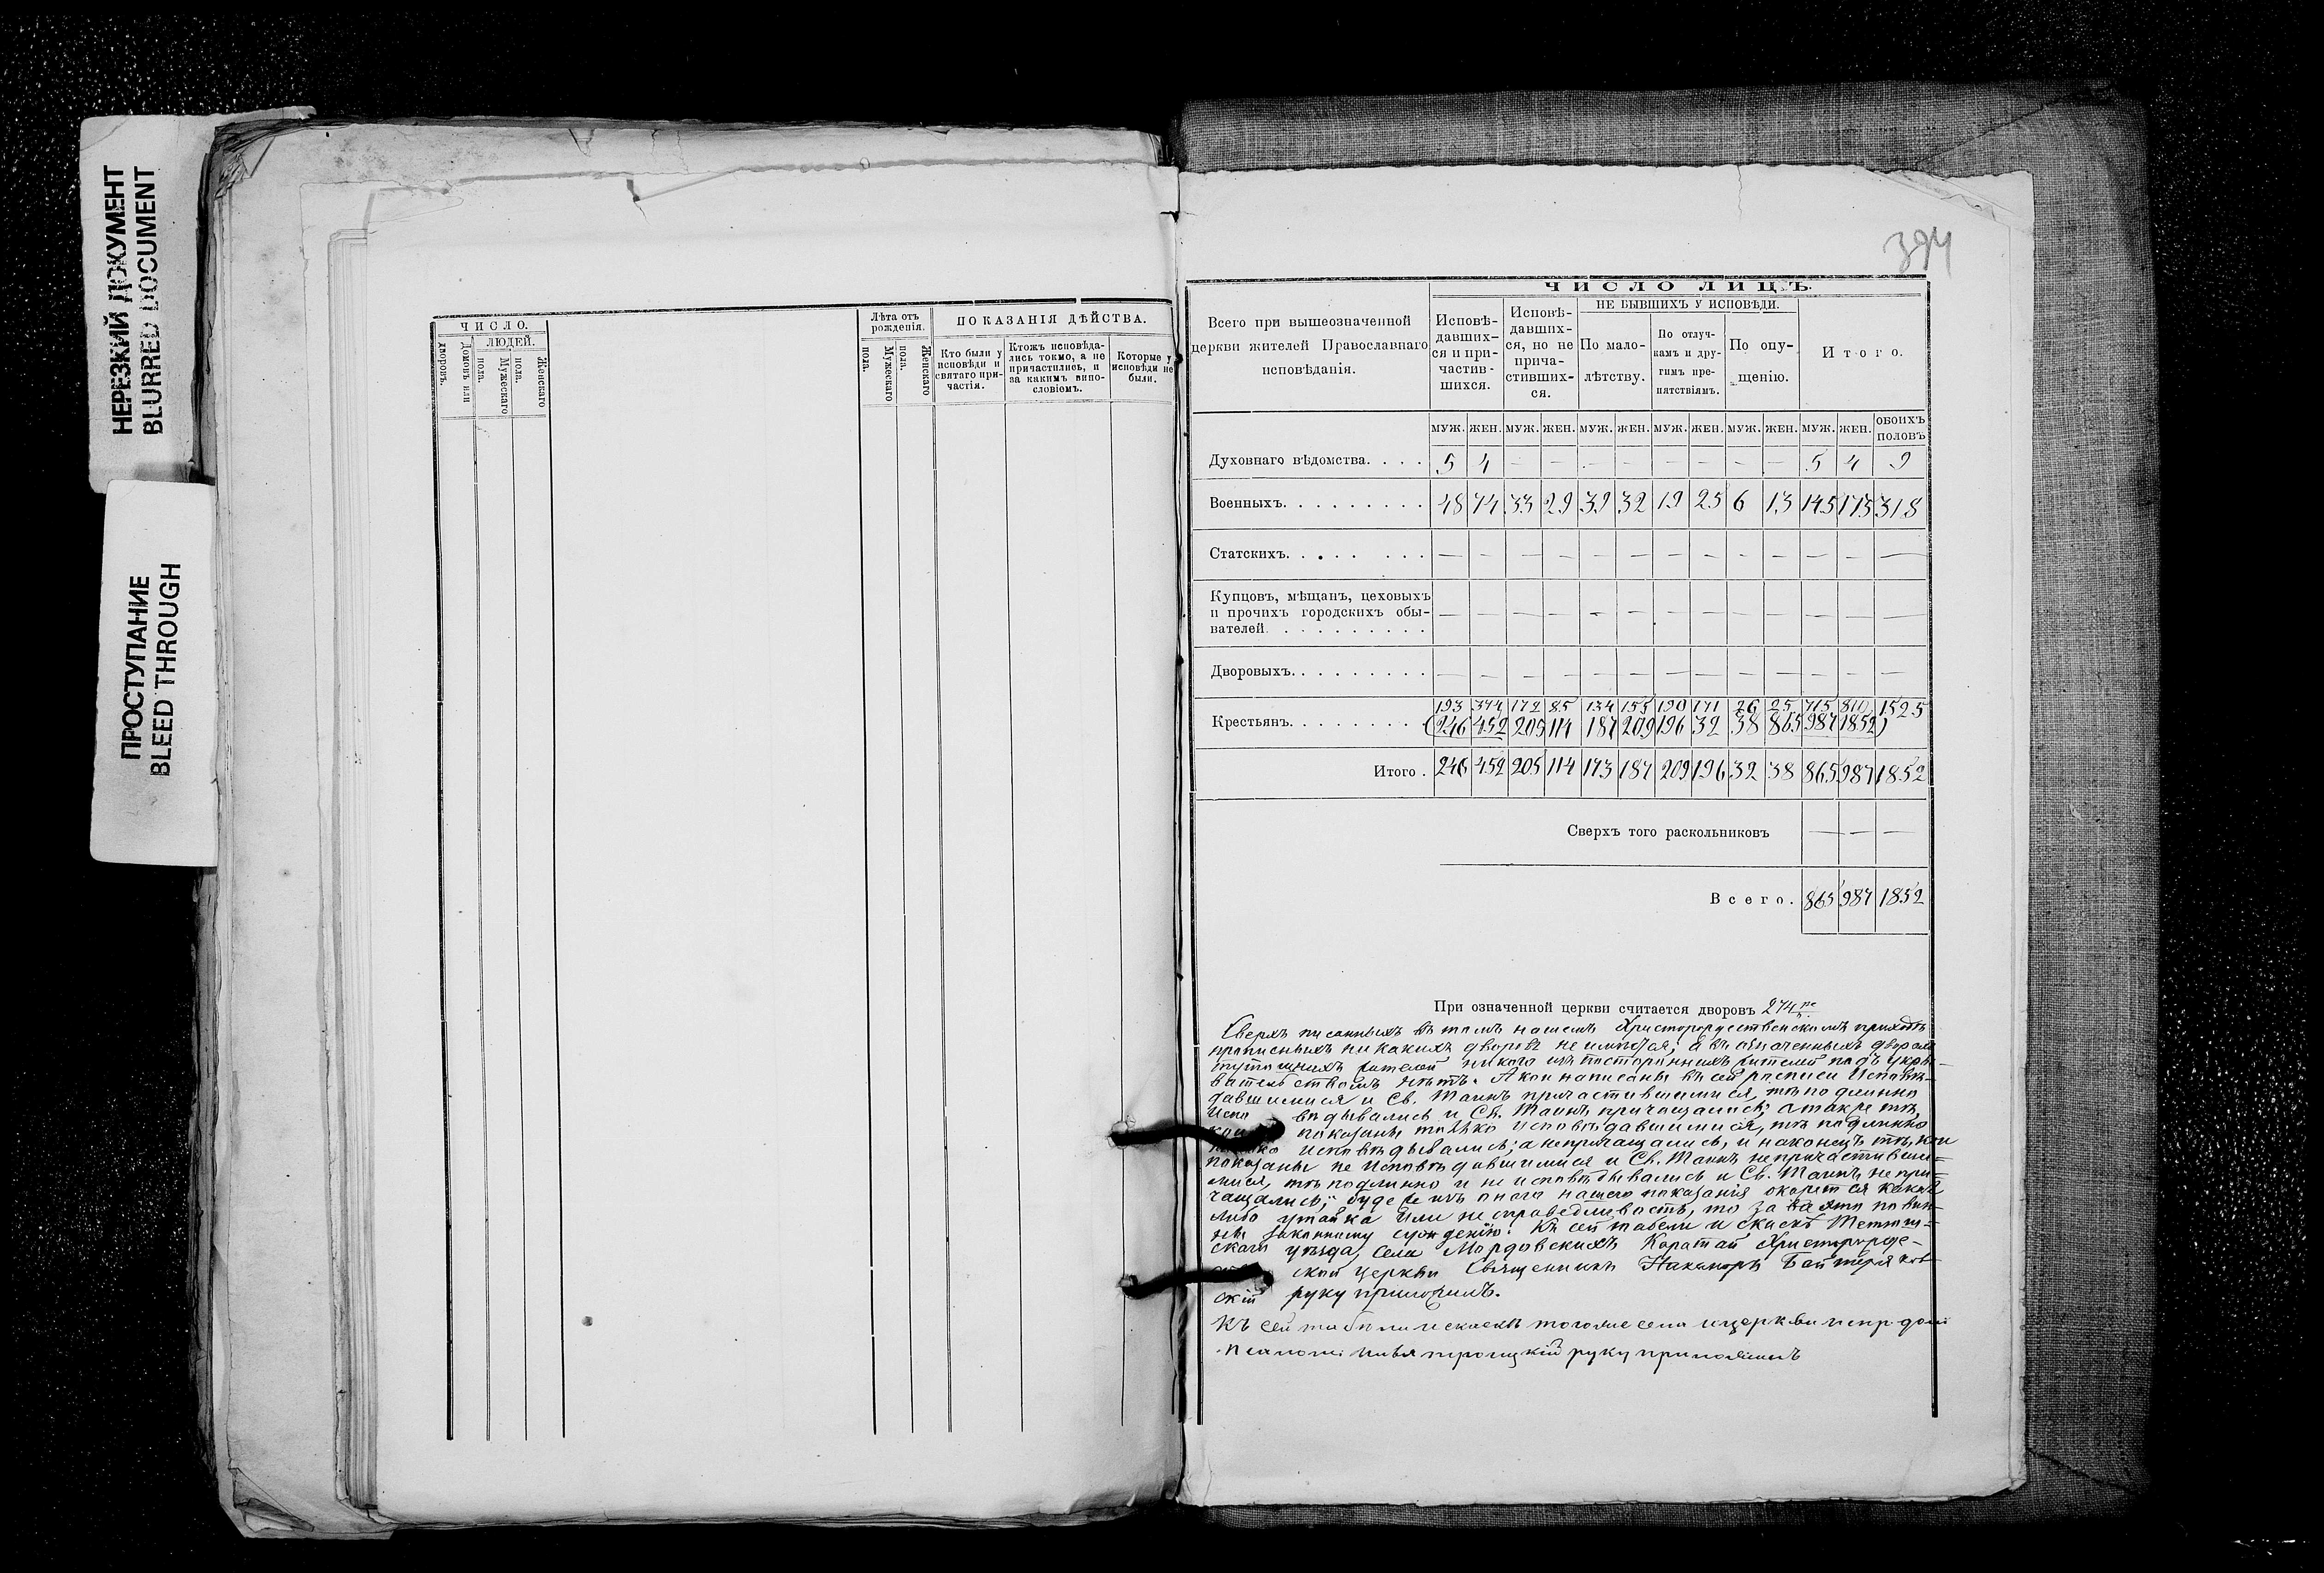 НЕРЕЗКИЙ ДОКУМЕНТ
BLURRED DOCUMENT
ПРОСТУПАНИЕ
BLEED THROUGH
ЧИСЛО.
ЛЮДЕЙ.
дворовъ.
Домовъ или
Мужескаго пола.
Женскаго пола.
Лѣта отъ рожденія.
Мужескаго пола.
Женскаго пола.
ПОКАЗАНІЯ ДѢЙСТВА.
Кто были у
исповѣди и
святаго при-
частія.
Ктожъ исповѣда-
лись токмо, а не
причастились, и
за какимъ вино-
словіемъ.
Которые у
исповѣди не
были.
394
ЧИСЛО ЛИЦЪ.
Всего при вышеозначенной
церкви жителей Православнаго
исповѣданія.
Исповѣ-
давших-
ся и при-
частив-
шихся.
Исповѣ-
давших-
ся, но не
прича-
стивших-
ся.
НЕ БЫВШИХЪ У ИСПОВѢДИ.
По мало-
лѣтству.
По отлуч-
камъ и дру-
гимъ пре-
пятствіямъ.
По опу-
щенію.
Итого.
МУЖ. ЖЕН. МУЖ. ЖЕН. МУЖ. ЖЕН. МУЖ. ЖЕН. МУЖ. ЖЕН. МУЖ. ЖЕН. ОБОИХЪ ПОЛОВЪ
Духовнаго вѣдомства. . . . 5 4 — — — — — — — — 5 4 9
Военныхъ. . . . . . . . . 48 74 33 29 39 32 19 25 6 13 145 173 318
Статскихъ. . . . . . . . — — — — — — — — — — — — —
Купцовъ, мѣщанъ, цеховыхъ
и прочихъ городскихъ обы-
вателей. . . . . . . . . . — — — — — — — — — — — — —
Дворовыхъ. . . . . . . . . — — — — — — — — — — — — —
193 374 172 85 134 155 190 171 26 25 715 810 1525
Крестьянъ. . . . . . . . . (246 452 205 114 187 209 196 32 38 865 987 1852)
Итого . 246 452 205 114 173 187 209 196 32 38 865 987 1852
Сверхъ того раскольниковъ — — —
Всего. 865 987 1852
При означенной церкви считается дворовъ 274
Сверхъ писанныхъ въ томъ нашемъ Христорождественскомъ приходѣ
прописныхъ никакихъ дворовъ не имѣется; а въ означенныхъ дворахъ
тутошнихъ жителей никого изъ постороннихъ жителей подъ укры-
вательствомъ нѣтъ. А кои написаны въ сей росписи Исповѣ-
давшимися и Св. Таинъ причастившимися, тѣ подлинно
Испо вѣдывались и Св. Таинъ причащались; а также тѣ,
кои показаны только исповѣдавшимися, тѣ подлинно
исповѣдывались, а непричащались, и наконецъ тѣ, кои
показаны не Исповѣдавшимися и Св. Таинъ непричастивши-
мися, тѣ подлинно и не исповѣдывались и Св. Таинъ не при-
чащались; буде же изъ онаго нашего показанія окажется какая
либо утайка или не справедливость, то за то повин-
ны законному сужденію. Къ сей табели и скаскѣ Тетюш-
скаго уѣзда, Села Мордовскихъ Каратай Христорожде-
ской церкви Священникъ Никаноръ Бай теряков-
скій руку приложилъ.
Къ сей табели и скаскѣ тогоже села и церкви
троицкій руку приложилъ